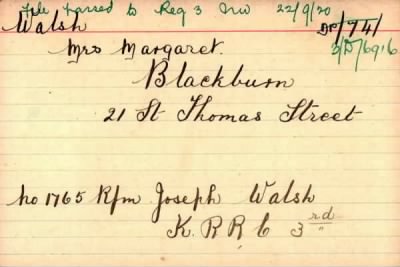 File Passed to Reg 3 Inv 22/9/20
Walsh
D/P/74/
2/D/6916
Mrs Margaret.
Blackburn
21 St Thomas Street
No 1765 Rfm Joseph Walsh
K. R R C 3rd